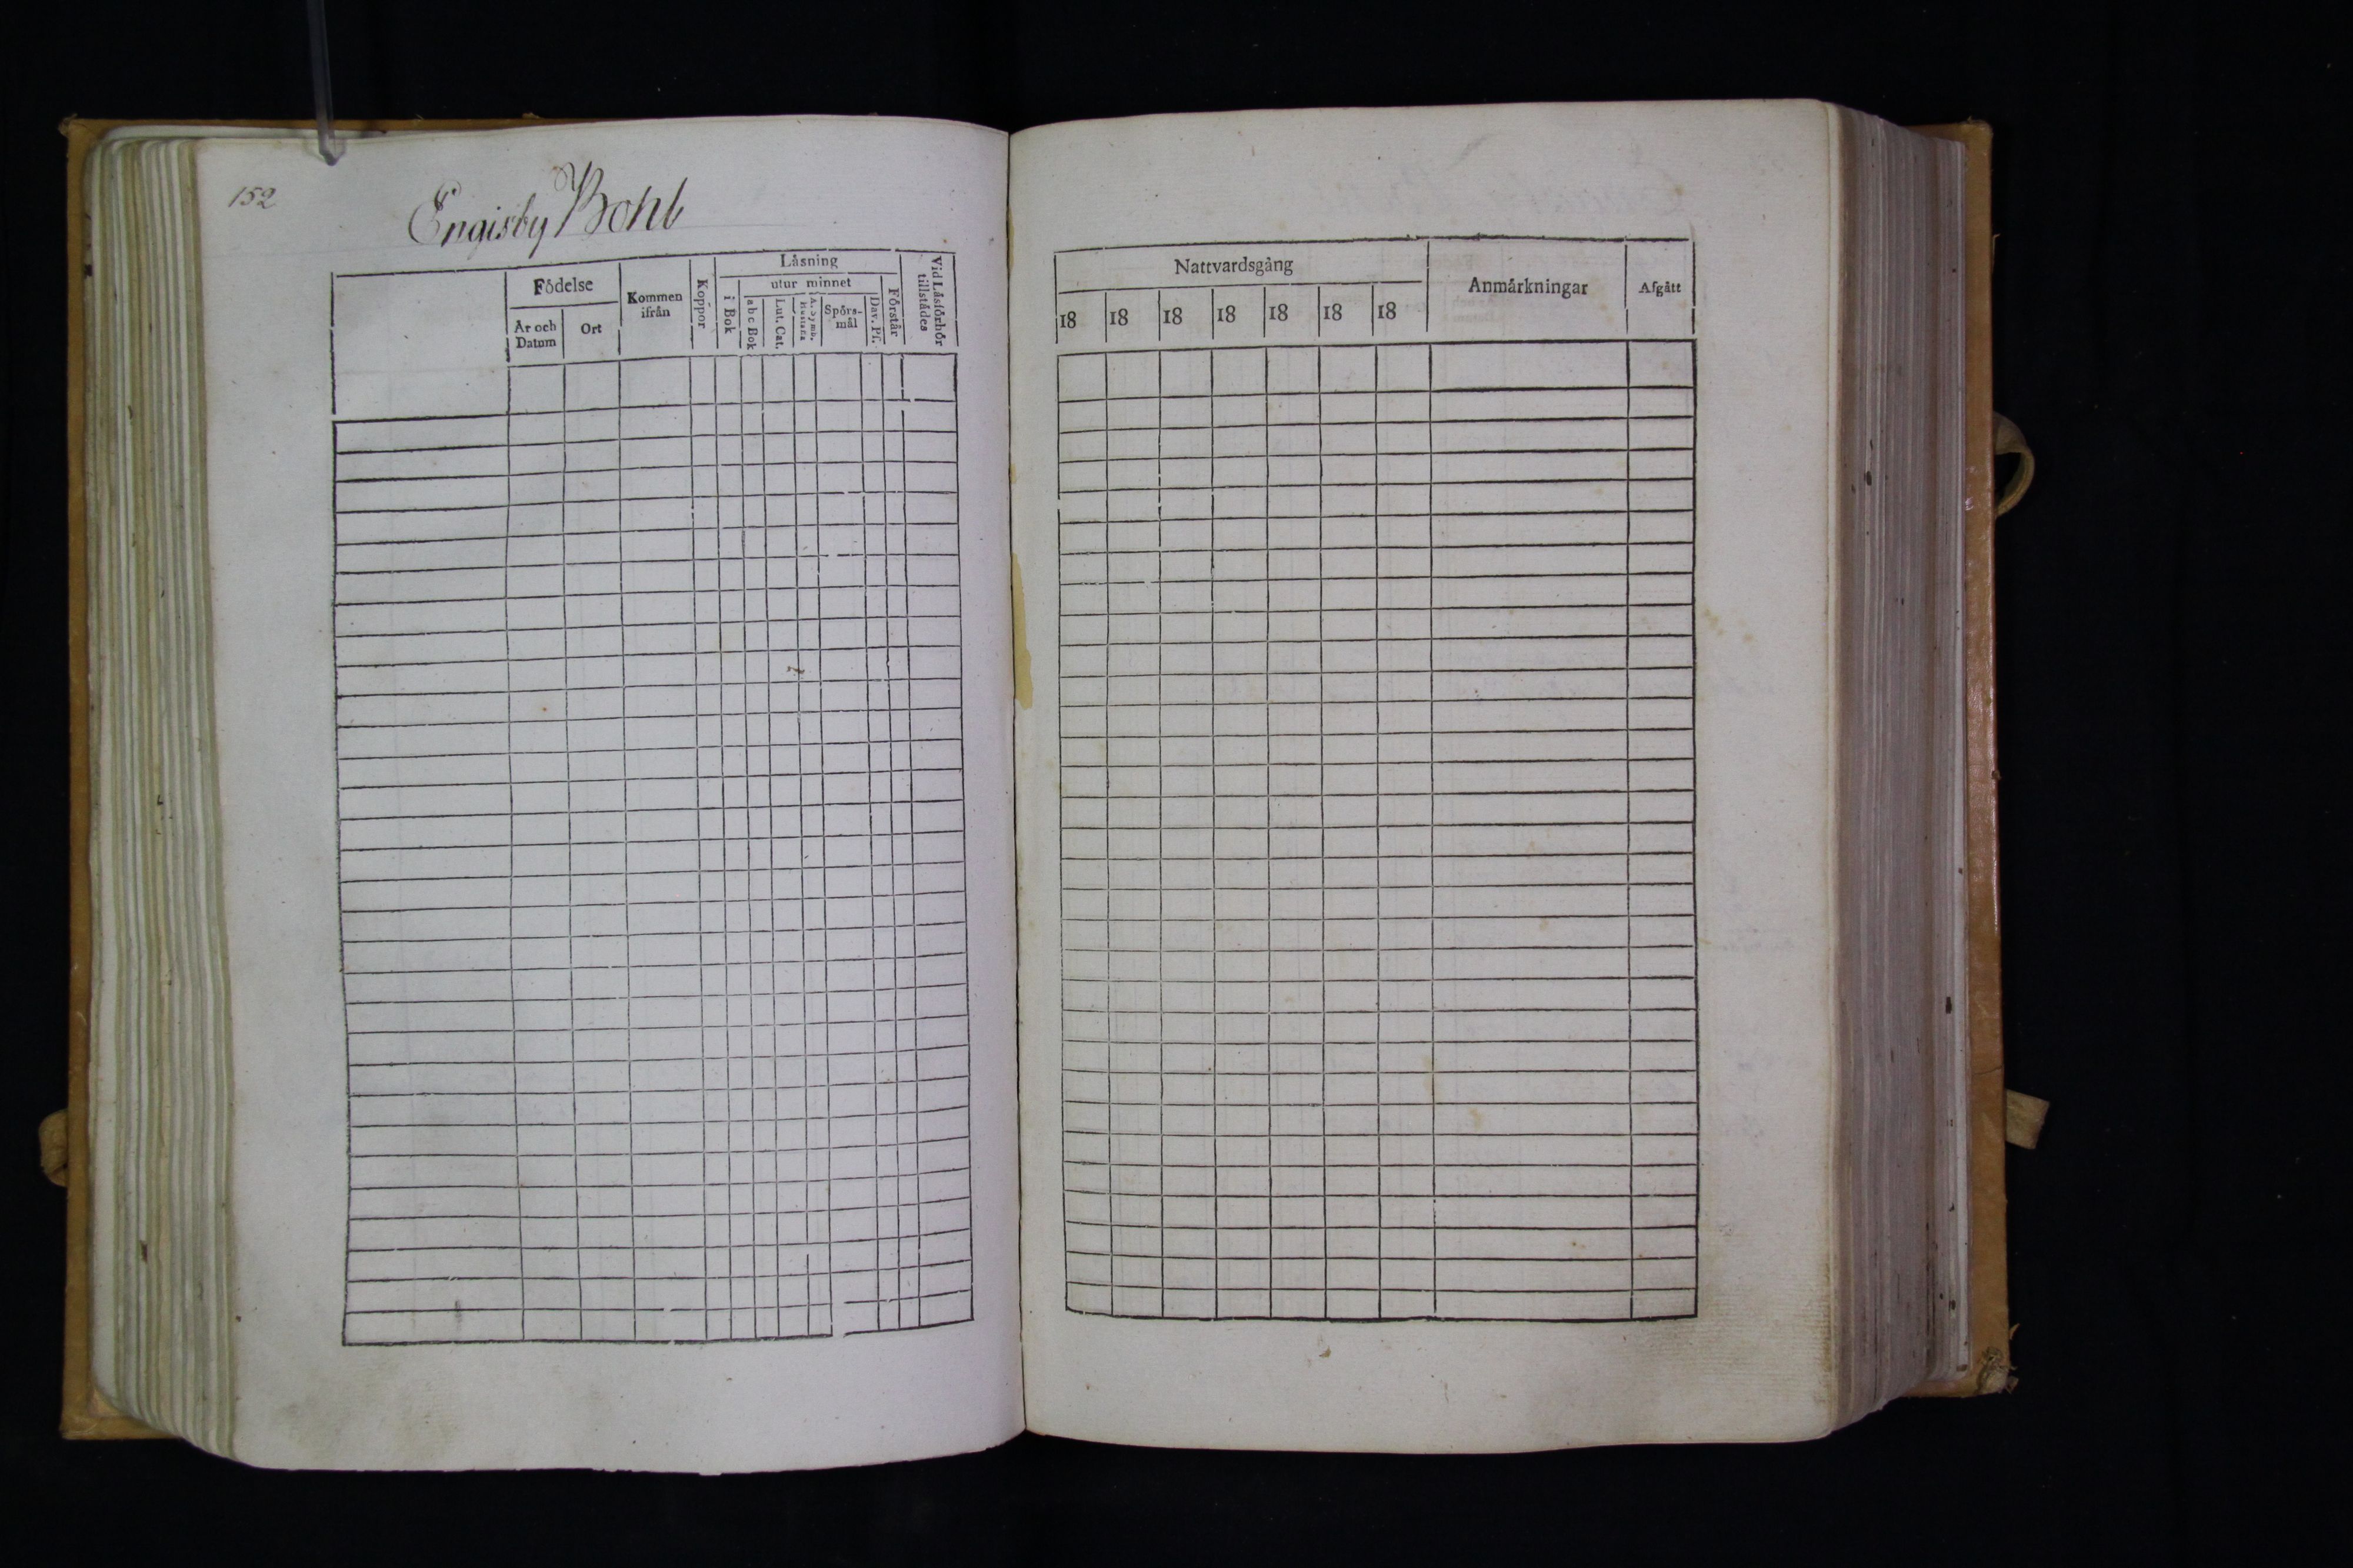 152
Engisby Bohl
Födelse
År och Datum
Ort
Kommen ifrån
Koppor
Läsning
i Bok
utur minnet
a b c Bok
Lut. Cat.
Spörs-mål
Dav. Ps.
Förstår
Vid Läsförhör tillstädes
Nattvardsgång
18 18 18 18 18 18 18
Anmärkningar
Afgått